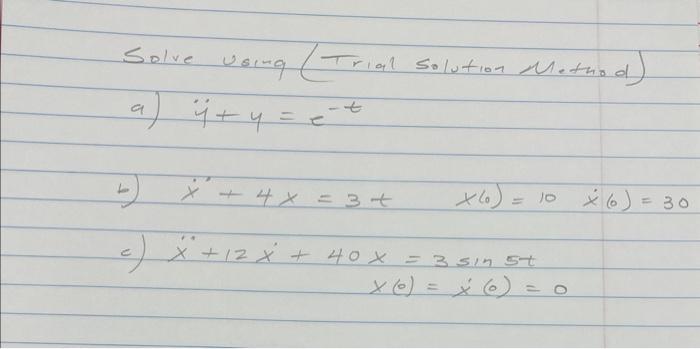 Solve using (Trial Solution Method)
a) ÿ + y = e^-t
b) ẍ + 4x = 3t x(0) = 10 ẋ(0) = 30
c) ẍ + 12ẋ + 40x = 3 sin 5t
x(0) = ẋ(0) = 0